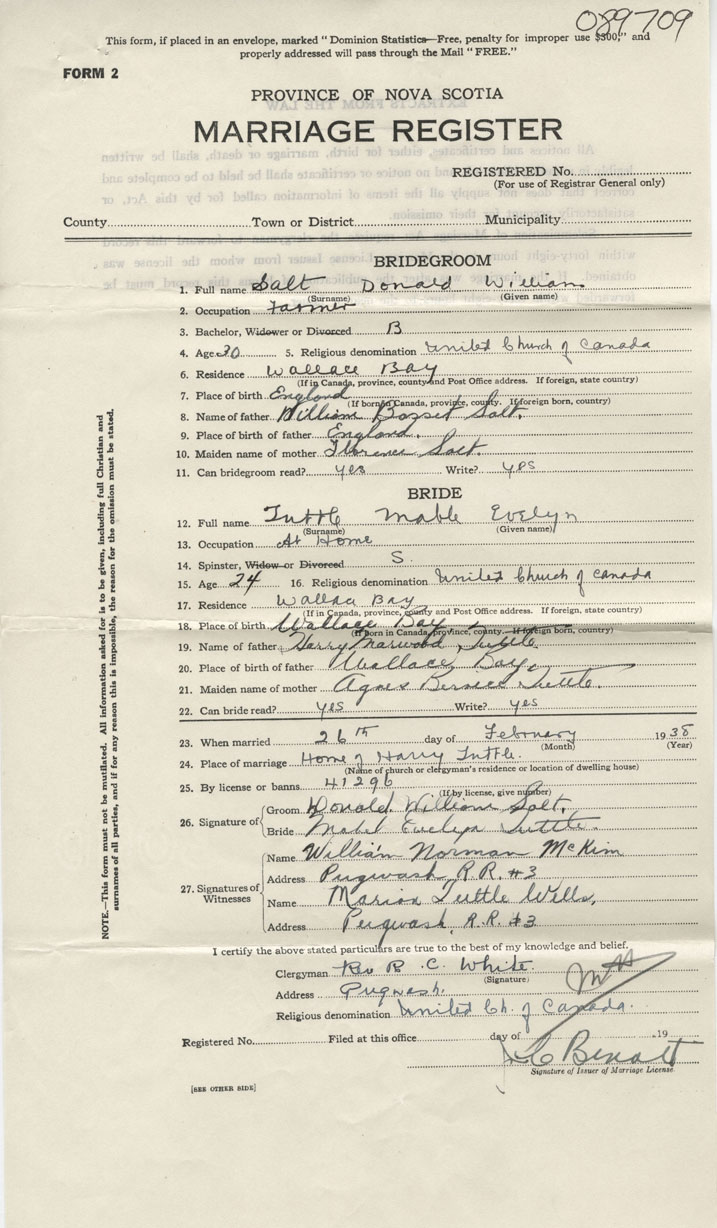 089709
This form, if placed in an envelope, marked "Dominion Statistics—Free, penalty for improper use $300," and
properly addressed will pass through the Mail "FREE."
FORM 2
PROVINCE OF NOVA SCOTIA
MARRIAGE REGISTER
REGISTERED No.
(For use of Registrar General only)
County Town or District Municipality
BRIDEGROOM
1. Full name Salt Donald William
(Surname) (Given name)
2. Occupation Farmer
3. Bachelor, Widower or Divorced B
4. Age 30 5. Religious denomination United Church of Canada
6. Residence Wallace Bay
(If in Canada, province, county and Post Office address. If foreign, state country)
7. Place of birth England
(If born in Canada, province, county. If foreign born, country)
8. Name of father William Salt.
9. Place of father England.
10. Maiden name of mother Florence Salt.
11. Can bridegroom read? yes Write? yes
BRIDE
12. Full name Tuttle Mable Evelyn
(Surname) (Given name)
13. Occupation At Home
14. Spinster, Widow or Divorced S.
15. Age 24 16. Religious denomination United Church of Canada
17. Residence Wallace Bay
(If in Canada, province, county and Post Office address. If foreign, state country)
18. Place of birth Wallace Bay
(If born in Canada, province, county. If foreign born, country)
19. Name of father Harry Marwood Tuttle.
20. Place of birth of father Wallace Bay.
21. Maiden name of mother Agnes Bernice Tuttle.
22. Can bride read? yes Write? yes
23. When married 26th day of February 1938
(Month) (Year)
24. Place of marriage Home of Harry Tuttle.
(Name of church or clergyman's residence or location of dwelling house)
25. By license or banns 41296
(If by license, give number)
26. Signature of
Groom Donald William Salt.
Bride Mabel Evelyn Tuttle.
27. Signatures of Witnesses
Name William Norman McKim
Address Pugwash R.R. #3
Name Marion Tuttle Wells,
Address Pugwash, R.R. #3
I certify the above stated particulars are true to the best of my knowledge and belief.
Clergyman Rev R. C. White.
(Signature)
Address Pugwash.
Religious denomination United Ch. of Canada.
Registered No. Filed at this office day of 19
Signature of Issuer of Marriage License
[SEE OTHER SIDE]
NOTE.—This form must not be mutilated. All information asked for is to be given, including full Christian and
surnames of all parties, and if for any reason this is impossible, the reason for the omission must be stated.